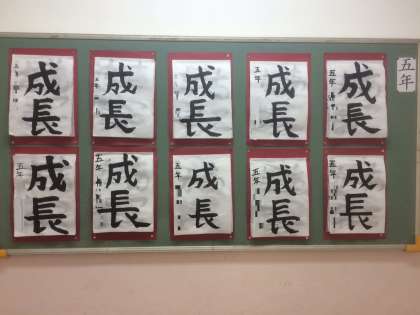 五年
成長
五年
成長
成長
成長
五年
成長
五年
成長
五年
成長
五年
成長
五年
成長
五年
成長
五年
成長
五年